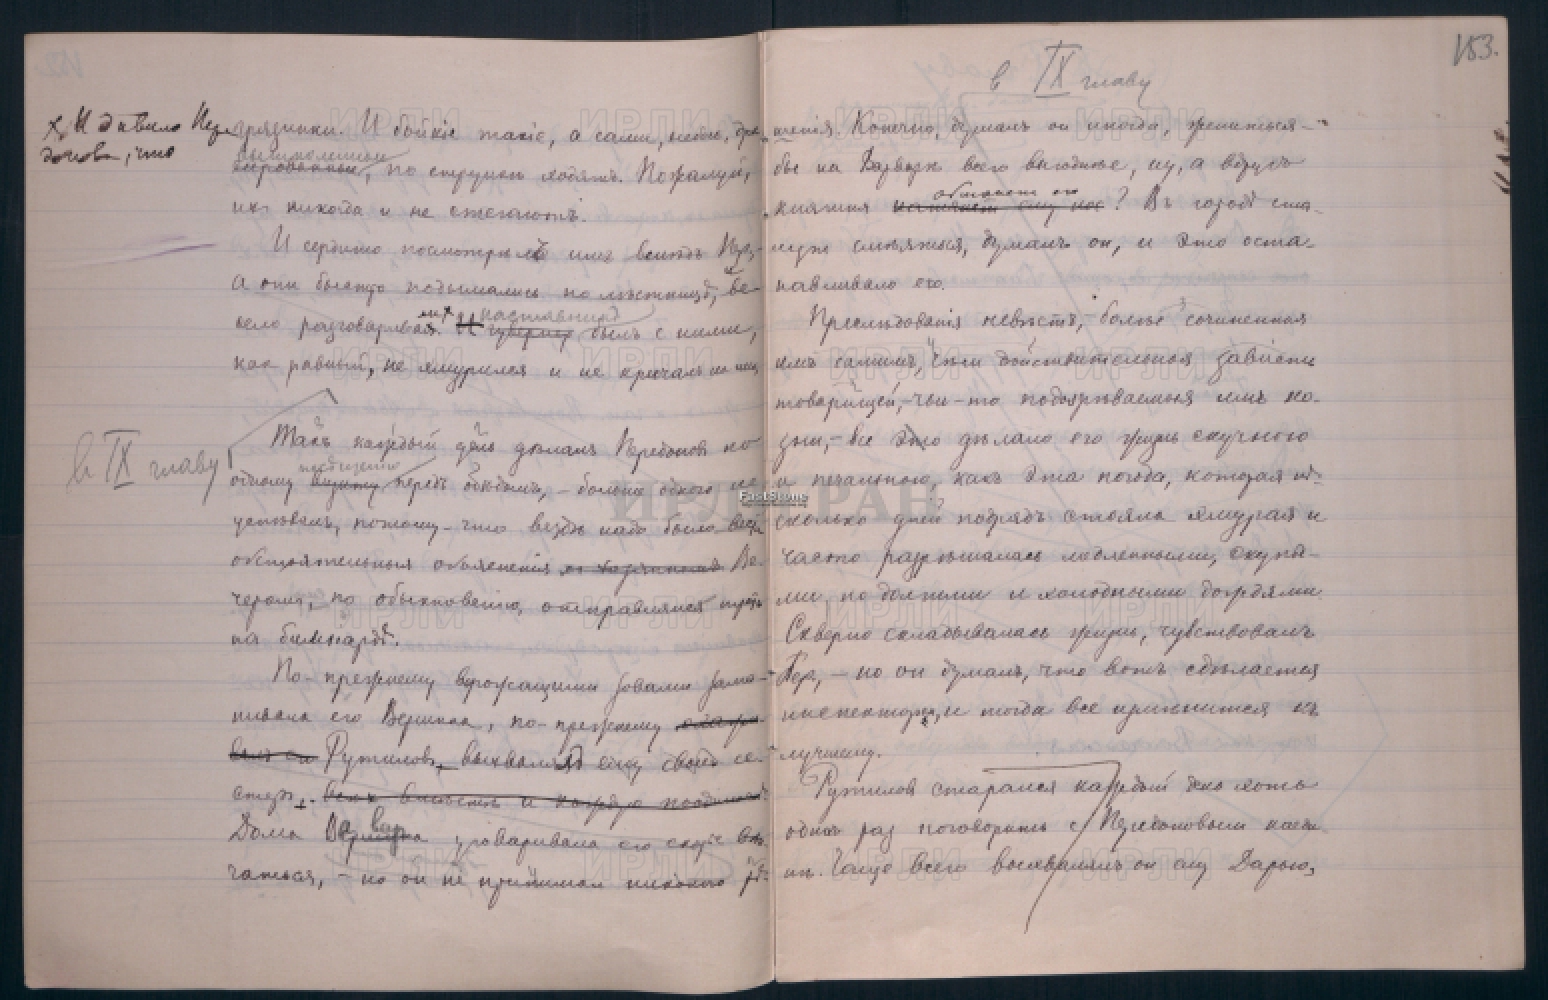 в IX главу
153.
И давило Пер
донова, что
грязники. И бойкіе такіе, а сами, небось,
вышколенные, по струнке ходятъ. Пожалуй,
ихъ никогда и не стегаютъ.
И сердито посмотрелъ имъ вследъ Пер.
А они быстро подымались по лестницѣ, ве-
село разговаривая. наставникъ былъ с ними,
как равный, не хмурился и не кричалъ на них
в IX главу
Такъ каждый день делалъ Передонов по
одному посещенію передъ обедомъ, – больше одного не
успевалъ, потому-что везде надо было вести
обстоятельныя объясненія Ве-
черомъ, по обыкновению, отправлялся играть
на билліардѣ.
По-прежнему ворожащими зовами зама-
нивала его Вершина, по-прежнему
Рутилов выхвалялъ ему своихъ се-
стеръ.
Дома Вар уговаривала его скорѣе вен-
чаться, – но он не принималъ никакого рѣ-
шенія. Конечно, думалъ он иногда, жениться-
бы на Варваре всего выгоднѣе, ну, а вдругъ
княгиня обманетъ его? Въ городѣ ста-
нутъ смеяться, думалъ он, и это оста-
навливало его.
Преследованія невѣстъ, – болѣе сочиненная
имъ самимъ, чем действительная зависть
товарищей, – чьи-то подозрѣваемыя имъ ко-
зни, – все это делало его жизнь скучною
и печальною, какъ эта погода, которая нѣ-
сколько дней подрядъ стояла хмурая и
часто разрешалась медленными, скупы-
ми но долгими и холодными дождями.
Скверно складывалась жизнь, чувствовалъ
Пер, – но он думалъ, что вотъ сделается
инспекторомъ, и тогда все применится къ
лучшему.
Рутилов старался каждый день хоть
один раз поговорить с Передоновымъ
Чаще всего выхвалялъ он ему Дарью,